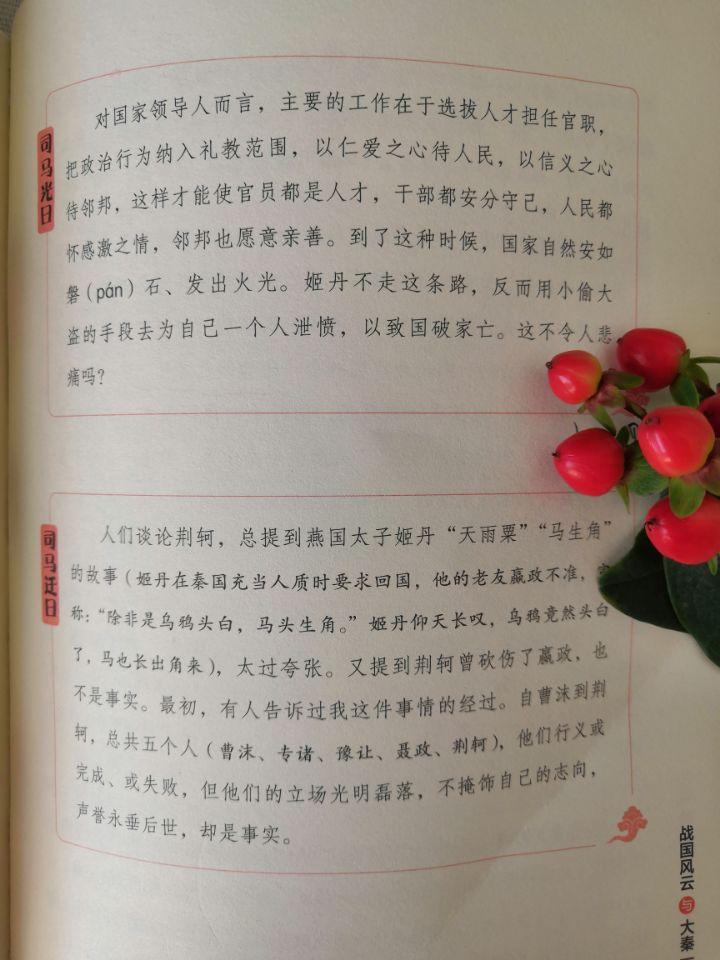 司马光曰
对国家领导人而言，主要的工作在于选拔人才担任官职，
把政治行为纳入礼教范围，以仁爱之心待人民，以信义之心
待邻邦，这样才能使官员都是人才，干部都安分守己，人民都
怀感激之情，邻邦也愿意亲善。到了这种时候，国家自然安如
磐（pán）石、发出火光。姬丹不走这条路，反而用小偷大
盗的手段去为自己一个人泄愤，以致国破家亡。这不令人悲
痛吗？
司马迁曰
人们谈论荆轲，总提到燕国太子姬丹“天雨粟”“马生角”
的故事（姬丹在秦国充当人质时要求回国，他的老友嬴政不准，
称：“除非是乌鸦头白，马头生角。”姬丹仰天长叹，乌鸦竟然头白
了，马也长出角来），太过夸张。又提到荆轲曾砍伤了嬴政，也
不是事实。最初，有人告诉过我这件事情的经过。自曹沫到荆
轲，总共五个人（曹沫、专诸、豫让、聂政、荆轲），他们行义或
完成、或失败，但他们的立场光明磊落，不掩饰自己的志向，
声誉永垂后世，却是事实。
战国风云与大秦